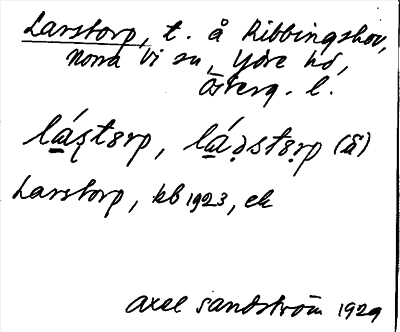 Larstorp, t. å Ribbingshov,
Norra Vi sn, Ydre hd,
Österg. l.
lá̱s̨tɛrp, lá̱ꞩstɛrp (å̄)
Larstorp, kb 1923, ek
Axel Sandström 1929